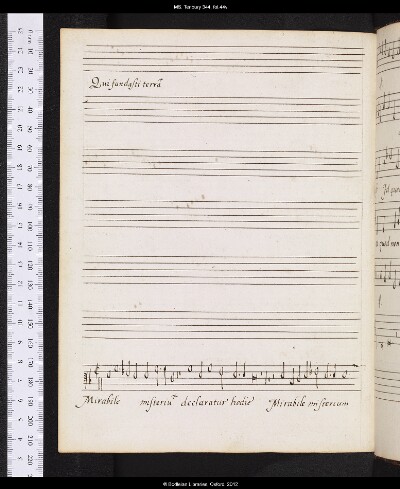 MS. Tenbury 344, fol.44v
Qui fundasti terrā
Mirabile misteriū declaratur hodie Mirabile misterium
© Bodleian Libraries, Oxford, 2012